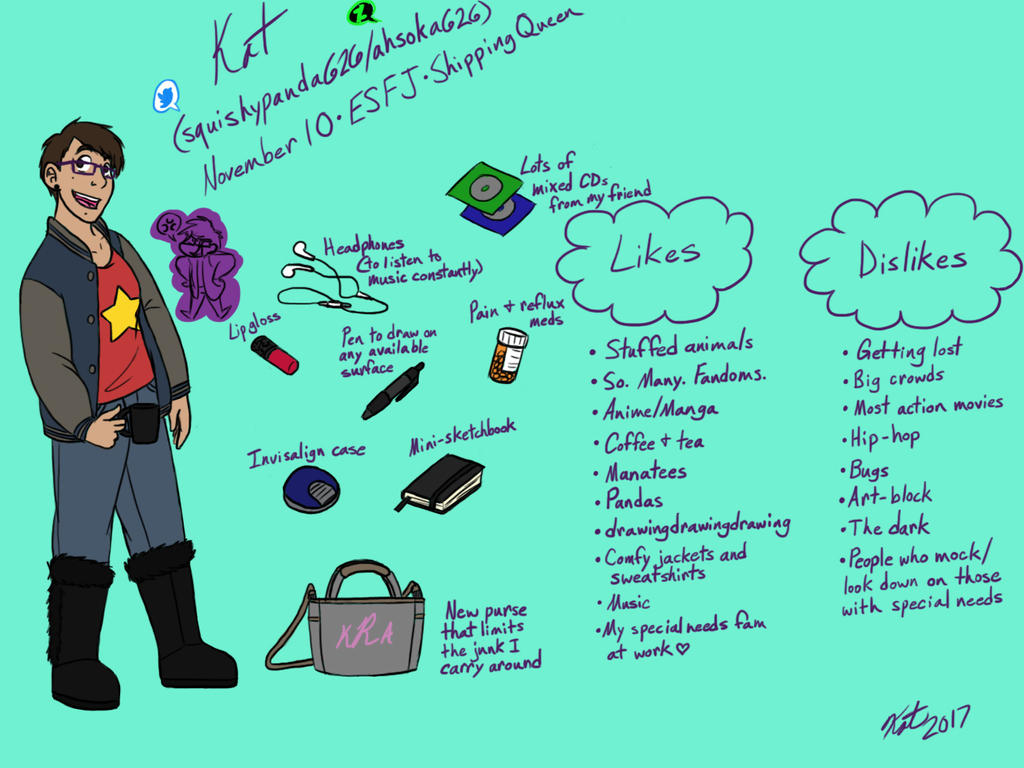 Kat
(squishypanda626/ahsoka626)
November 10 · ESFJ · Shipping Queen
Lots of
mixed CDs
from my friend
Headphones
(to listen to
music constantly)
Lipgloss
Pen to draw on
any available
surface
Pain + reflux
meds
Invisalign case
Mini-sketchbook
KRA
New purse
that limits
the junk I
carry around
Likes
• Stuffed animals
• So. Many. Fandoms.
• Anime/Manga
• Coffee + tea
• Manatees
• Pandas
• drawingdrawingdrawing
• Comfy jackets and
sweatshirts
• Music
• My special needs fam
at work ♡
Dislikes
• Getting lost
• Big crowds
• Most action movies
• Hip-hop
• Bugs
• Art-block
• The dark
• People who mock/
look down on those
with special needs
Kat 2017